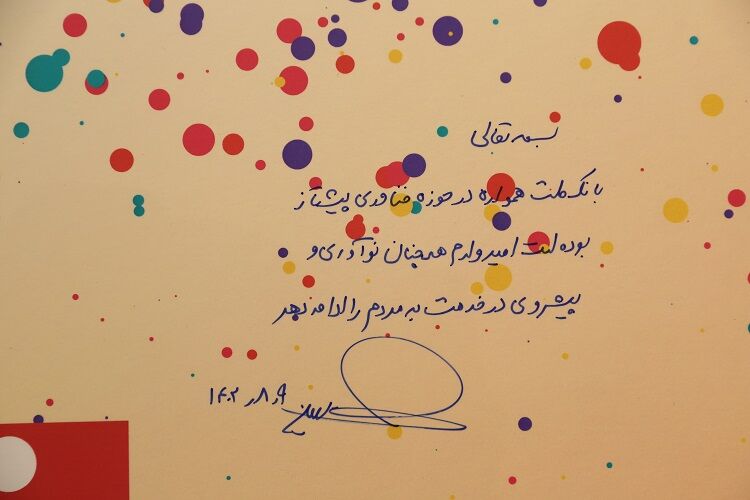 بسمه تعالی
بانک ملت همواره در حوزه فناوری پیشتاز
بوده است امیدوارم همچنان نوآوری و
پیشروی در خدمت به مردم را ادامه دهد
۱۴۰۲،۸،۹